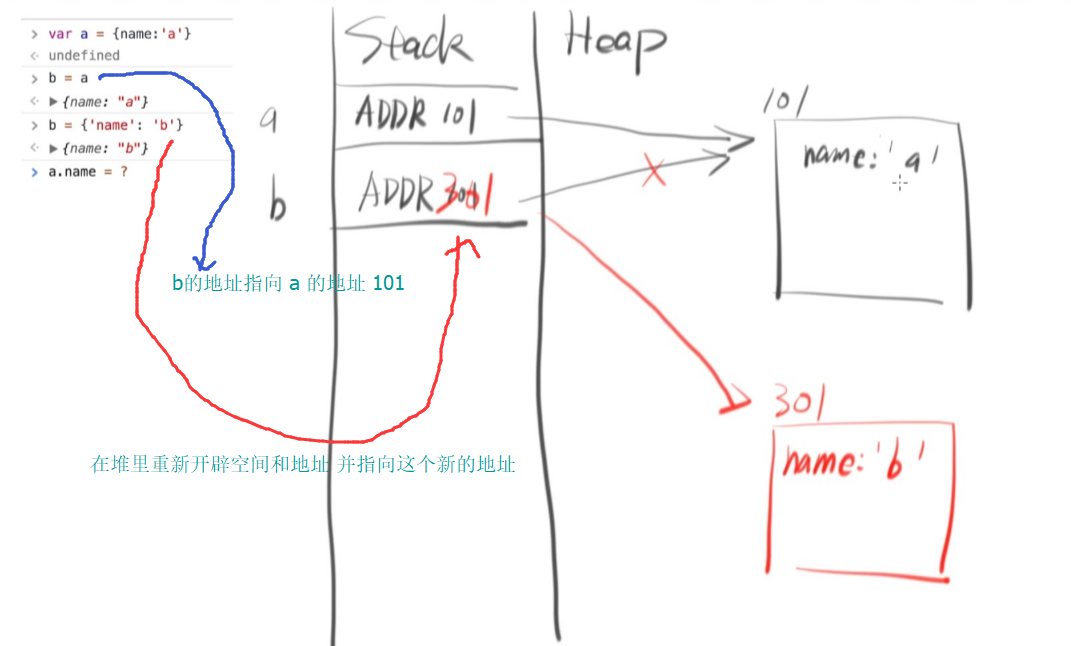 > var a = {name:'a'}
< undefined
> b = a
< ▶{name: "a"}
> b = {'name': 'b'}
< ▶{name: "b"}
> a.name = ?
Stack
Heap
a
ADDR 101
101
name: 'a'
b
ADDR 301
b的地址指向 a 的地址 101
301
name: 'b'
在堆里重新开辟空间和地址 并指向这个新的地址